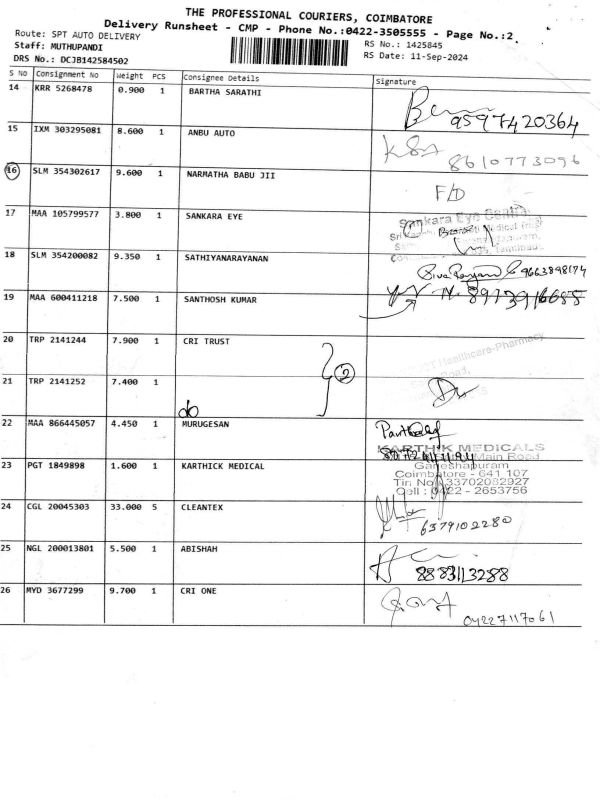 THE PROFESSIONAL COURIERS, COIMBATORE
Delivery Runsheet - CMP - Phone No.:0422-3505555 - Page No.:2
Route: SPT AUTO DELIVERY
Staff: MUTHUPANDI
RS No.: 1425845
DRS No.: DCJB142584502
RS Date: 11-Sep-2024
S NO Consignment No Weight PCS Consignee Details Signature
14 KRR 5268478 0.900 1 BARTHA SARATHI
9597420364
15 IXM 303295081 8.600 1 ANBU AUTO
KSA 8610773096
16 SLM 354302617 9.600 1 NARMATHA BABU JII
F/D
17 MAA 105799577 3.800 1 SANKARA EYE
Sankara Eye Centre
18 SLM 354200082 9.350 1 SATHIYANARAYANAN
9663898174
19 MAA 600411218 7.500 1 SANTHOSH KUMAR
20 TRP 2141244 7.900 1 CRI TRUST
Healthcare-Pharmacy
Road,
2
21 TRP 2141252 7.400 1
do
22 MAA 866445057 4.450 1 MURUGESAN
KARTHIK MEDICALS
Main Road
23 PGT 1849898 1.600 1 KARTHICK MEDICAL
Ganeshapuram
Coimbatore - 641 107
Tin No 33702082927
Cell : 0422 - 2653756
24 CGL 20045303 33.000 5 CLEANTEX
6379102280
25 NGL 200013801 5.500 1 ABISHAH
8883113288
26 MYD 3677299 9.700 1 CRI ONE
04227117061